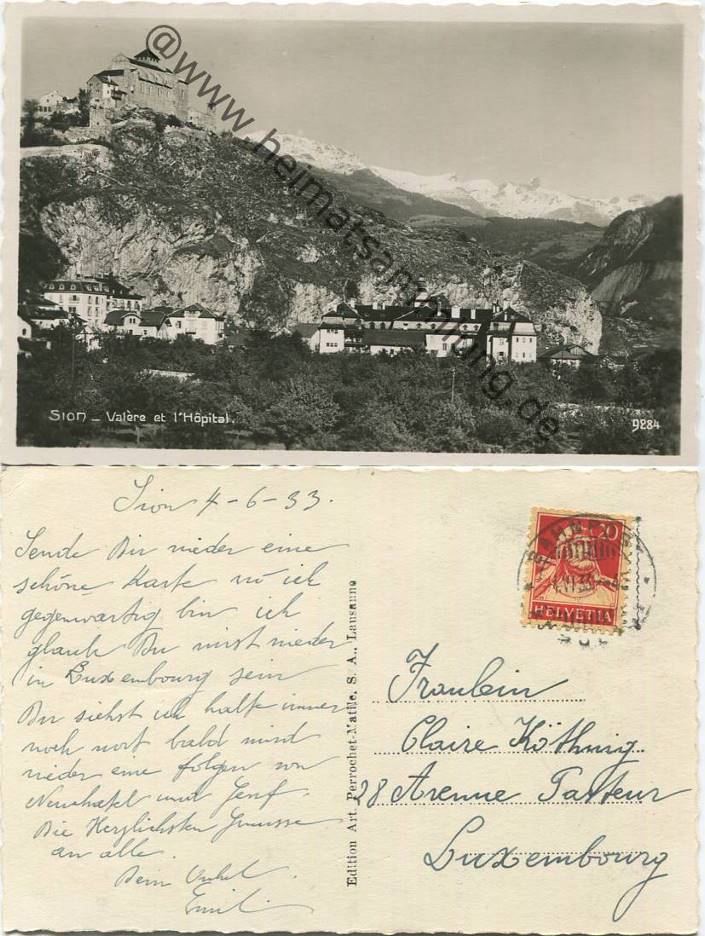 @www.heimatsammlung.de
SION _ Valère et l'Hôpital.
9284
Sion 4-6-33.
Sende Dir wieder eine
schöne Karte wo ich
gegenwärtig bin ich
glaube Du wirst wieder
in Luxembourg sein
Du siehst ich halte immer
noch wort bald wird
wieder eine folgen von
Neuchatel und Genf.
Die Herzlichsten Grüsse
an alle.
Dein Onkel
Emil
Edition Art. Perrochet-Matile, S. A., Lausanne
20
HELVETIA
Fraulein
Claire Köthnig
28 Avenue Pasteur
Luxembourg